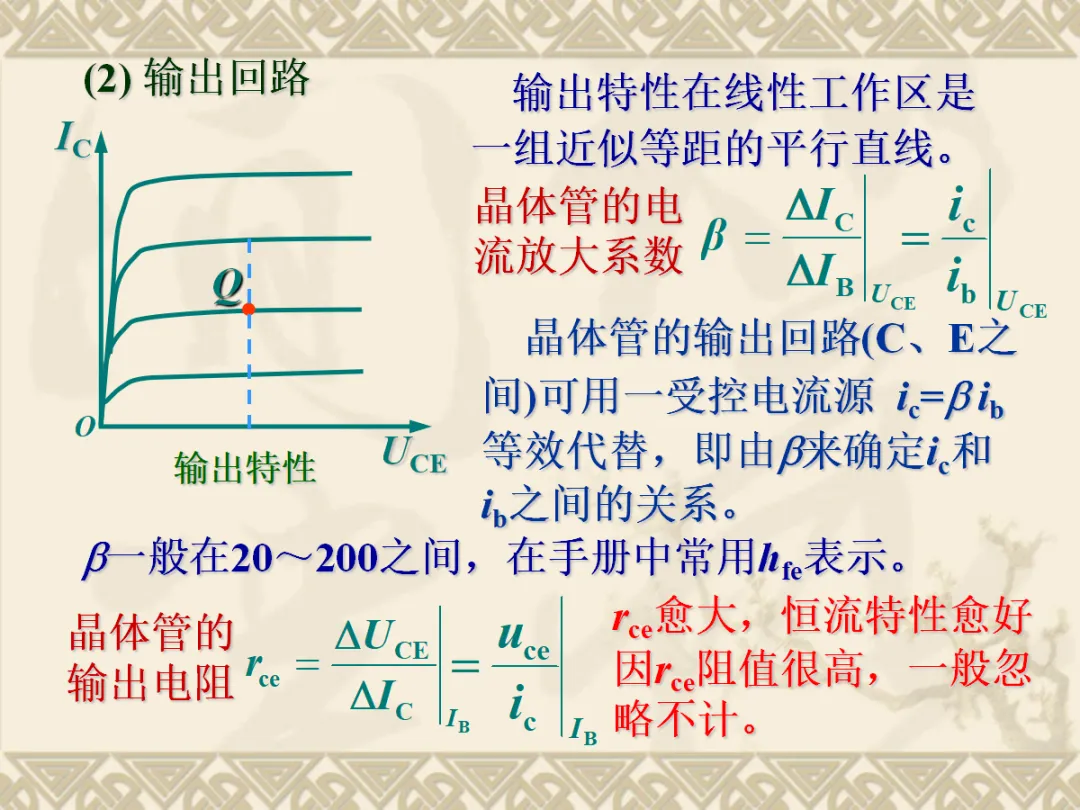 (2) 输出回路
I_C
Q
O
U_CE
输出特性
输出特性在线性工作区是
一组近似等距的平行直线。
晶体管的电
流放大系数
β = ΔI_C / ΔI_B |U_CE = i_c / i_b |U_CE
晶体管的输出回路(C、E之
间)可用一受控电流源 i_c=β i_b
等效代替，即由β来确定i_c和
i_b之间的关系。
β一般在20～200之间，在手册中常用h_fe表示。
晶体管的
输出电阻
r_ce = ΔU_CE / ΔI_C |I_B = u_ce / i_c |I_B
r_ce愈大，恒流特性愈好
因r_ce阻值很高，一般忽
略不计。